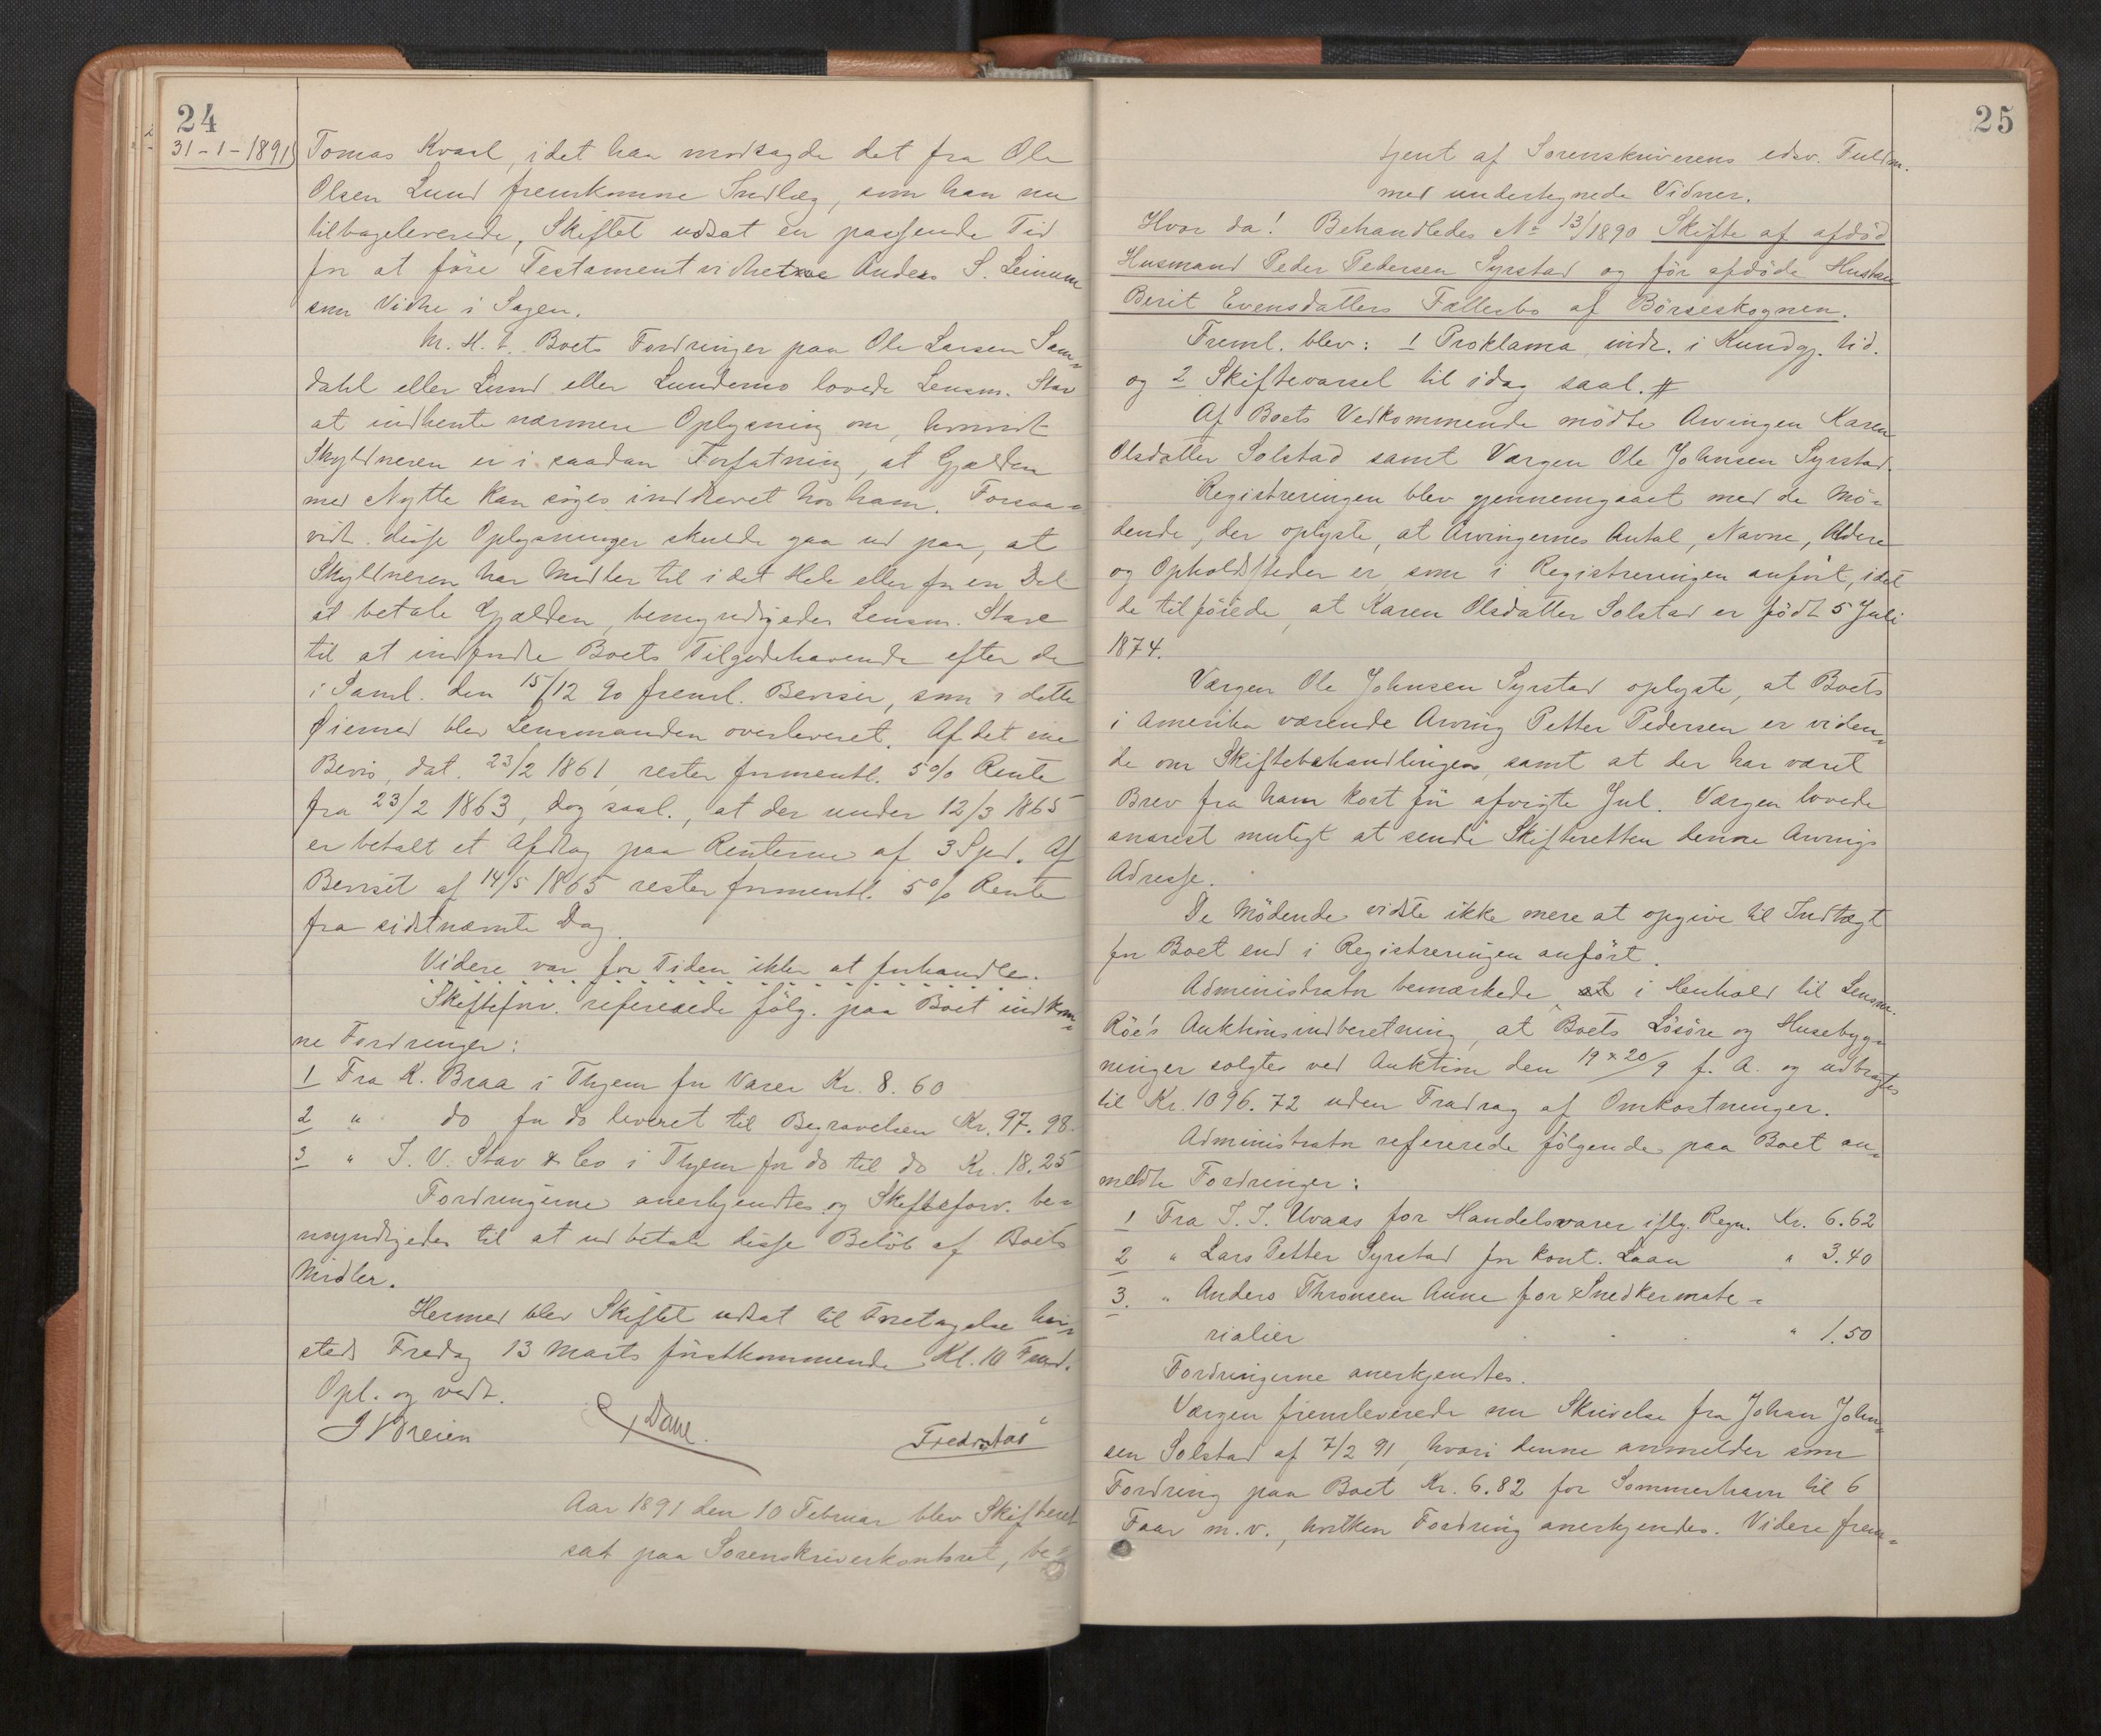 24
31-1-1891
Tomas Kvaal, idet han modsagde det fra Ole
Olsen Lund fremkomne Indlæg, som han nu
tilbageleverede, Skiftet udsat en passende Tid
for at före Testamentvidnerne Anders S. Leinum
som Vidne i Sagen.
M. H. t. Boets Fordringer paa Ole Larsen Sun-
dahl eller Lund eller Lundemo lovede Lensm. Stav
at indhente nærmere Oplysning om, hvorvidt
Skyldneren er i saadan Forfatning, at Gjælden
med Nytte kan söges inddrevet hos ham. Forsaa-
vidt disse Oplysninger skulde gaa ud paa, at
Skyldneren har Midler til i det Hele eller for en Del
at betale Gjælden, bemyndigedes Lensm. Stav
til at indfordre Boets Tilgodehavende efter de
i Saml. den 15/12 90 freml. Beviser, som i dette
Øiemed blev Lensmanden overleveret. Af det ene
Bevis, dat. 23/2 1861, rester formentl. 5% Rente
fra 23/2 1863, dog saal., at der under 12/3 1865
er betalt et Afdrag paa Renterne af 3 Spd. Af
Beviset af 14/5 1865 rester formentl. 5% Rente
fra sidstnævnte Dag.
Videre var for Tiden ikke at forhandle.
Skifteforv. refererede fölg. paa Boet indkom-
ne Fordringer:
1 Fra K. Braa i Thjem for Varer Kr. 8.60
2 " do for do leveret til Begravelsen Kr. 97.98
3 " J. V. Stav & Co i Thjem for do til do Kr. 18.25
Fordringerne anerkjendtes og Skifteforv. be-
myndigedes til at udbetale disse Belöb af Boets
Midler.
Hermed blev Skiftet udsat til Foretagelse her-
steds Fredag 13 Marts förstkommende Kl. 10 Form.
Opl. og vedt.
Aar 1891 den 10 Februar blev Skifteret
sat paa Sorenskriverkontoret, be-
25
tjent af Sorenskriverens edsv. Fuldm.
med undertegnede Vidner.
Hvor da! Behandledes No 13/1890 Skifte af afdöd
Husmand Peder Pedersen Syrstad og för afdöde Hustru
Berit Evensdatters Fællesbo af Börseskognen.
Freml. blev: 1 Proklama indr. i Kundgj. tid.
og 2 Skiftevarsel til idag saal. #
Af Boets Vedkommende mödte Arvingen Karen
Olsdatter Solstad samt Værgen Ole Johnsen Syrstad.
Registreringen blev gjennemgaaet med de Mö-
dende, der oplyste, at Arvingernes Antal, Navne, Aldere
og Opholdssteder er som i Registreringen anfört, idet
de tilföiede, at Karen Olsdatter Solstad er födt 5 Juli
1874.
Værgen Ole Johnsen Syrstad oplyste, at Boets
i Amerika værende Arving Petter Pedersen er viden-
de om Skiftebehandlingen, samt at der har været
Brev fra ham kort för afvigte Jul. Værgen lovede
snarest muligt at sende Skifteretten denne Arvings
Adresse.
De Mödende vidste ikke mere at opgive til Indtægt
for Boet end i Registreringen anfört.
Administrator bemærkede i Henhold til Lensm.
Röe's Auktionsindberetning, at Boets Lösöre og Husebyg-
ninger solgtes ved Auktion den 19 & 20/9 f. A. og udbragtes
til Kr. 1096.72 uden Fradrag af Omkostninger.
Administrator refererede fölgende paa Boet an-
meldte Fordringer:
1 Fra J. J. Uvaas for Handelsvarer iflg. Regn. Kr. 6.62
2 " Lars Petter Syrstad for kont. Laan " 3.40
3. " Anders Thronsen Aune for Snedkermate-
rialier " 1.50
Fordringerne anerkjendtes.
Værgen fremleverede nu Skrivelse fra Johan John-
sen Solstad af 7/2 91, hvori denne anmelder som
Fordring paa Boet Kr. 6.82 for Sommerhavn til 6
Faar m.v., hvilken Fordring anerkjendes. Videre frem-